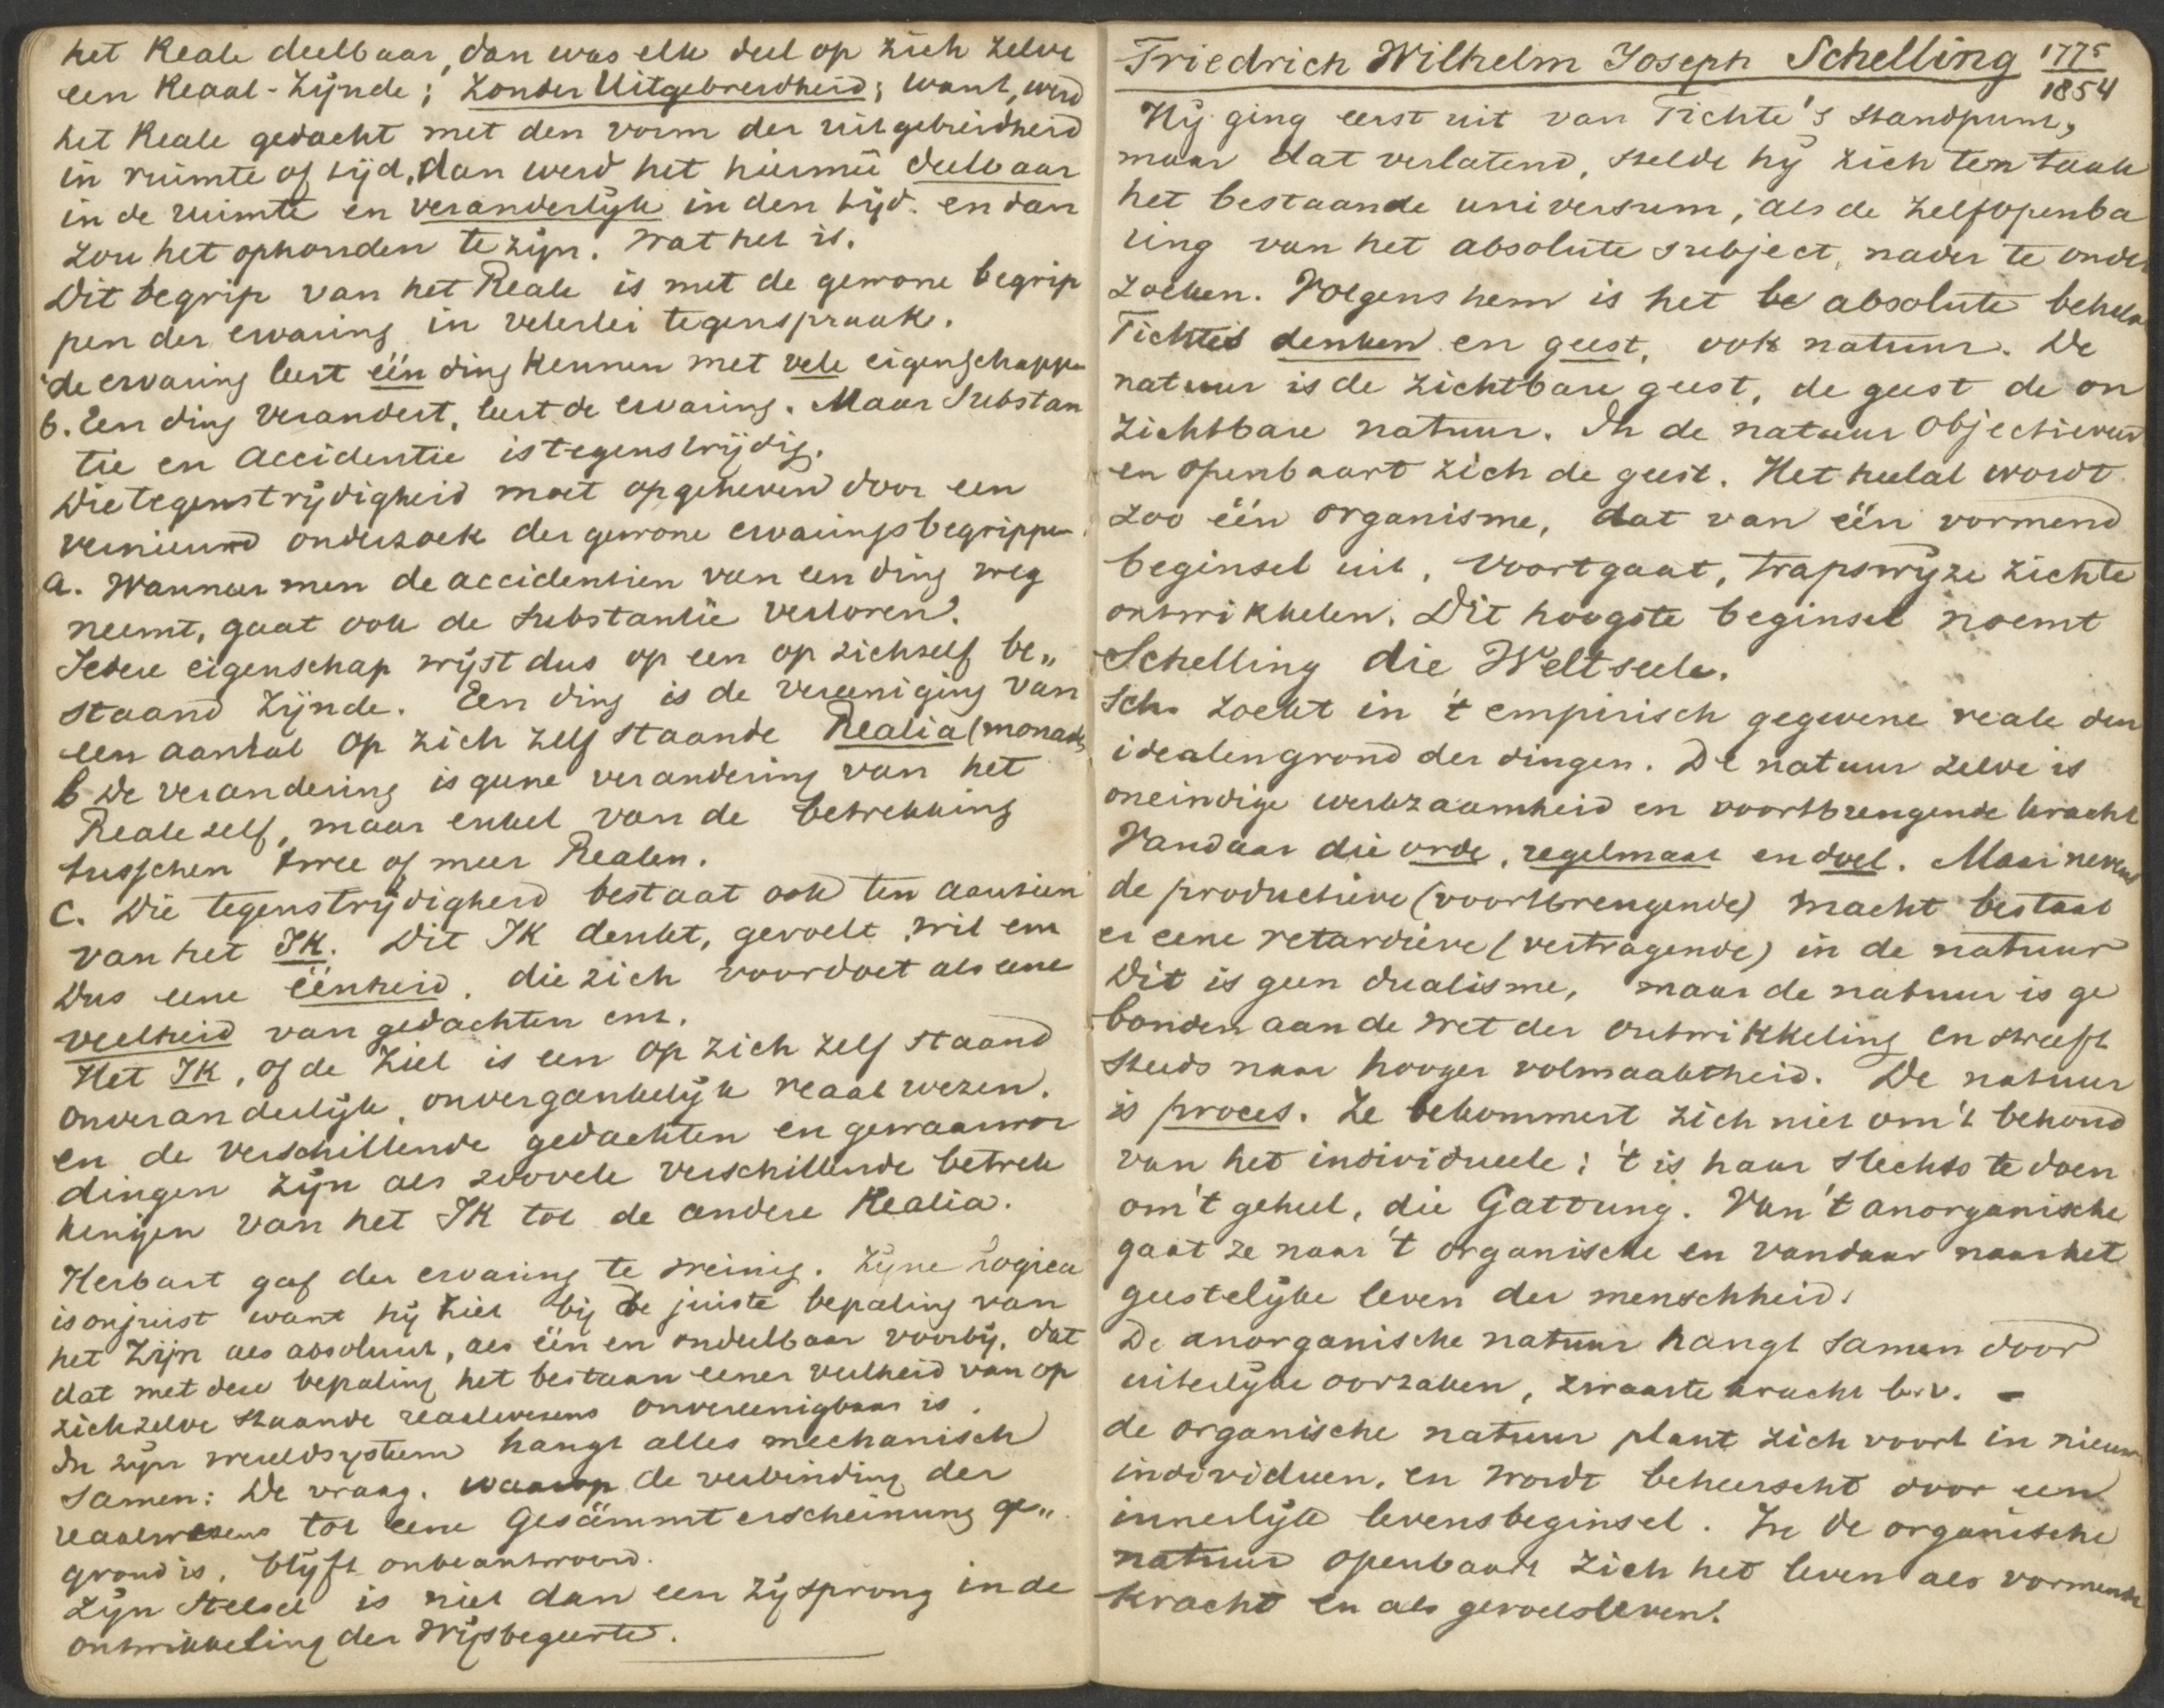 het Reale deelbaar, dan was elk deel op zich zelve
een Reaal-Zijnde; zonder Uitgebreidheid; want, werd
het Reale gedacht met den vorm der uitgebreidheid
in ruimte of tijd, dan werd het hiermee deelbaar
in de ruimte en veranderlijk in den tijd. en dan
zou het ophouden te zijn. Wat het is.
Dit begrip van het Reale is met de gewone begrip
pen der ervaring in velerlei tegenspraak.
de ervaring leert één ding kennen met vele eigenschappen
b. Een ding verandert, leert de ervaring. Maar Substan
tie en Accidentie is tegenstrijdig.
Die tegenstrijdigheid moet opgeheven door een
vernieuwd onderzoek der gewone ervaringsbegrippen
a. Wanneer men de accidentien van een ding weg
neemt, gaat ook de substantie verloren.
Iedere eigenschap wijst dus op een op zichzelf be„
staand zijnde. Een ding is de vereeniging van
een aantal op zich zelf staande Realia (monads
b De verandering is geene verandering van het
Reale zelf, maar enkel van de betrekking
tusschen twee of meer Realen.
C. Die tegenstrijdigheid bestaat ook ten aanzien
van het IK. Dit IK denkt, gevoelt, wil enz
Dus eene ëenheid, die zich voordoet als eene
veelheid van gedachten enz.
Het IK, of de Ziel is een op zich zelf staand
onveranderlijk, onvergankelijk reaal wezen.
en de verschillende gedachten en gewaarwor
dingen zijn als zoovele verschillende betrek
kingen van het IK tot de andere Realia.
Herbart gaf der ervaring te weinig. Zijne Logica
is onjuist want hij ziet bij de juiste bepaling van
het Zijn als absoluut, als één en ondeelbaar voorbij, dat
dat met deze bepaling het bestaan eener veelheid van op
zichzelve staande reaalwezens onvereenigbaar is.
In zijn wereldsysteem hangt alles mechanisch
samen: De vraag, waarop de verbinding der
reaalwezens tot eene Gesämmterscheinung ge„
grond is, blijft onbeantwoord.
Zijn Stelsel is niet dan een zijsprong in de
ontwikkeling der Wijsbegeerte.
Friedrich Wilhelm Joseph Schelling 1775
1854
Hij ging eerst uit van Fichte's standpunt,
maar dat verlatend, stelde hij zich ten taak
het bestaande universum, als de zelfopenba
ring van het absolute subject, nader te onder
zoeken. Volgens hem is het be absolute behalve
Fichte's denken en geest, ook natuur. De
natuur is de zichtbare geest, de geest de on
zichtbare natuur. In de natuur objectiveert
en openbaart zich de geest. Het heelal wordt
zoo één organisme, dat van één vormend
beginsel uit, voortgaat, trapswijze zichte
ontwikkelen. Dit hoogste beginsel noemt
Schelling die Weltseele.
Sch. zoekt in 't empirisch gegevene reale den
idealen grond der dingen. De natuur zelve is
oneindige werkzaamheid en voortbrengende kracht
Vandaar die orde, regelmaat en doel. Maar nevens
de productieve (voortbrengende) macht bestaat
er eene retardieve (vertragende) in de natuur
Dit is geen dualisme, maar de natuur is ge
bonden aan de wet der ontwikkeling en streeft
steeds naar hooger volmaaktheid. De natuur
is proces. Ze bekommert zich niet om 't behoud
van het individueele; 't is haar slechts te doen
om 't geheel, die Gattung. Van 't anorganische
gaat ze naar 't organische en vandaar naar het
geestelijke leven der menschheid.
De anorganische natuur hangt samen door
uiterlijke oorzaken, zwaarte kracht b.v. -
de organische natuur plant zich voort in nieuwe
individuen, en wordt beheerscht door een
innerlijk levensbeginsel. In de organische
natuur openbaart zich het leven als vormende
kracht en als gevoelsleven.